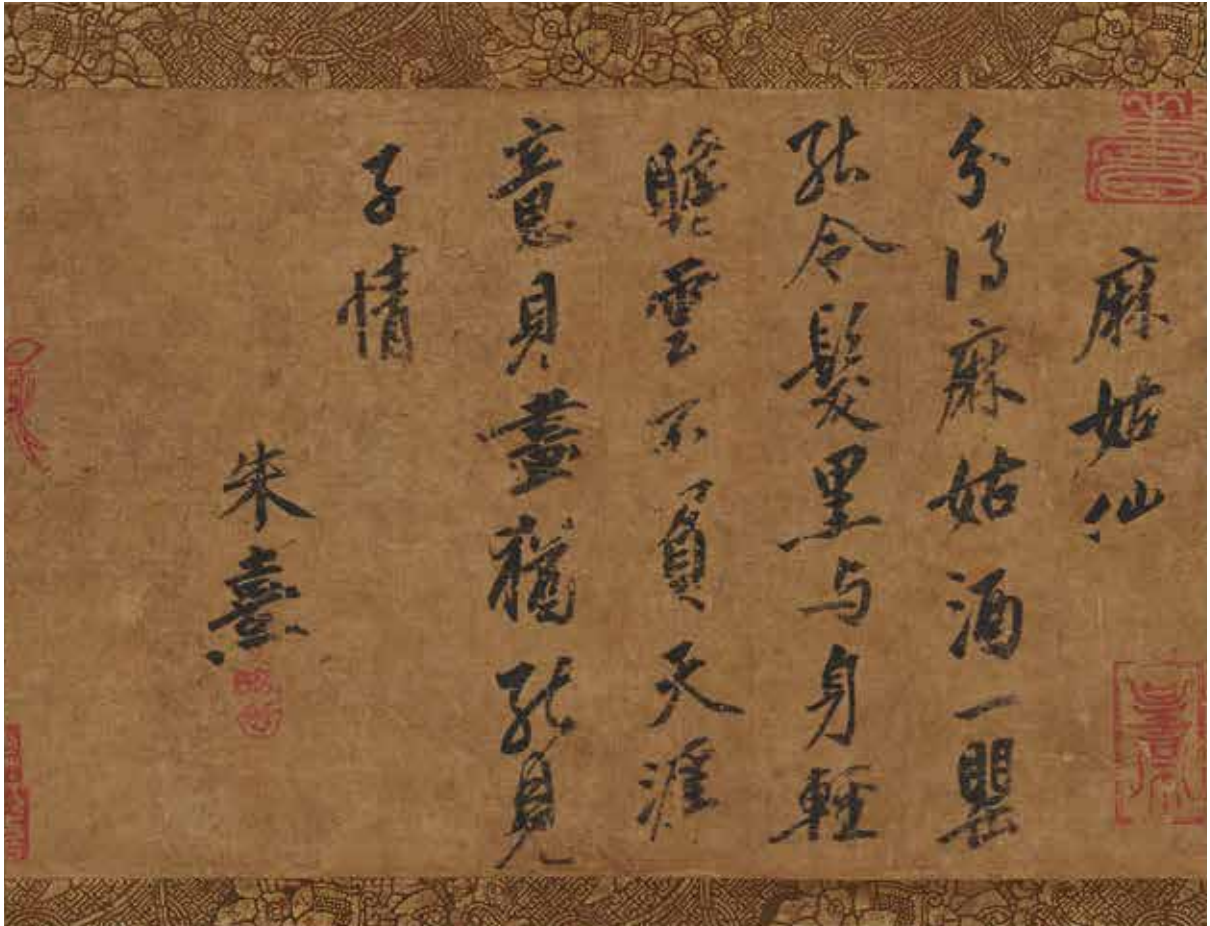 麻姑仙
分得麻姑酒一罌
能令髮黑与身輕
瞻雲不負天涯
意具盡能見
子情
朱熹